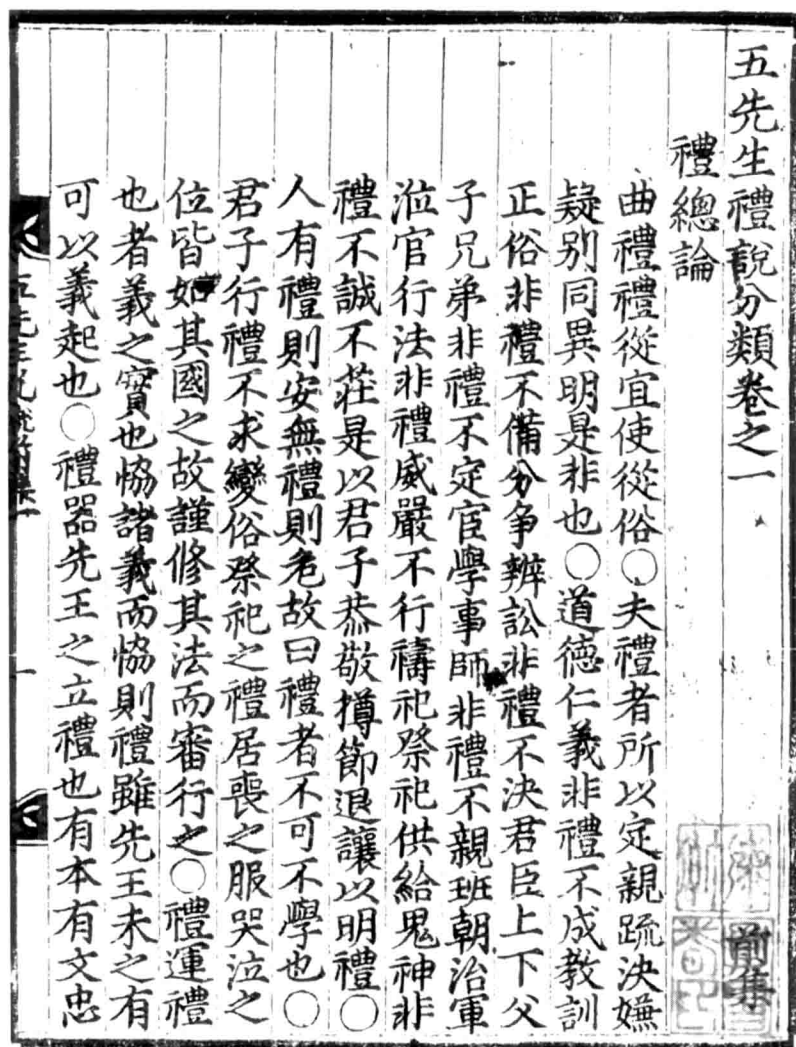 五先生禮說分類卷之一
前集
禮總論
曲禮禮從宜使從俗○夫禮者所以定親疏決嫌
疑別同異明是非也○道德仁義非禮不成教訓
正俗非禮不備分爭辨訟非禮不決君臣上下父
子兄弟非禮不定宦學事師非禮不親班朝治軍
涖官行法非禮威嚴不行禱祀祭祀供給鬼神非
禮不誠不莊是以君子恭敬撙節退讓以明禮○
人有禮則安無禮則危故曰禮者不可不學也○
君子行禮不求變俗祭祀之禮居喪之服哭泣之
位皆如其國之故謹修其法而審行之○禮運禮
也者義之實也恊諸義而恊則禮雖先王未之有
可以義起也○禮器先王之立禮也有本有文忠
五先生
一